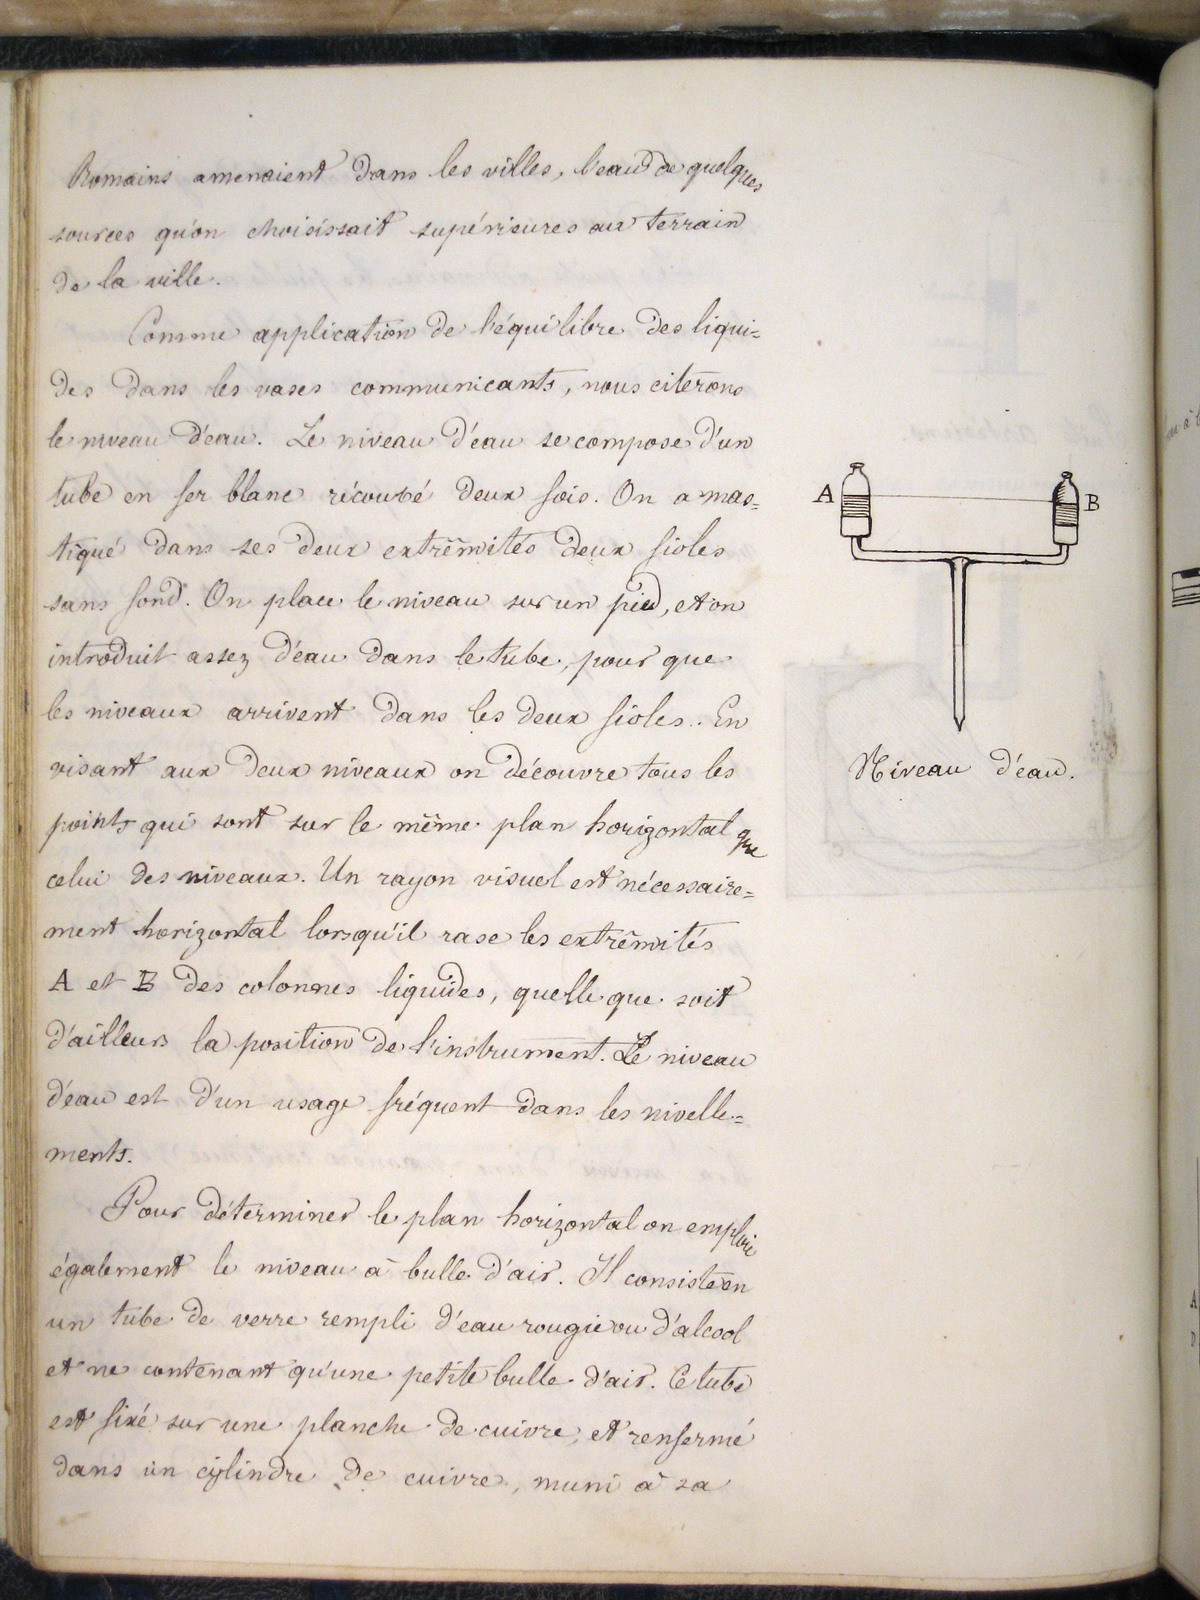 Romains amenaient dans les villes, l'eau de quelques
sources qu'on choisissait supérieures aux terrain
de la ville.
Comme application de l'équilibre des liqui=
des dans les vases communicants, nous citerons
le niveau d'eau. Le niveau d'eau se compose d'un
tube en fer blanc récourbé deux fois. On a mas=
tiqué dans ses deux extrêmités deux fioles
sans fond. On place le niveau sur un pied, et on
introduit assez d'eau dans le tube, pour que
les niveaux arrivent dans les deux fioles. En
visant aux deux niveaux on découvre tous les
points qui sont sur le même plan horizontal que
celui des niveaux. Un rayon visuel est nécessaire=
ment horizontal lorsqu'il rase les extrêmités
A et B des colonnes liquides, quelle que soit
d'ailleurs la position de l'instrument. Le niveau
d'eau est d'un usage fréquent dans les nivelle=
ments.
Pour déterminer le plan horizontal on emploie
également le niveau à bulle d'air. Il consiste en
un tube de verre rempli d'eau rougie ou d'alcool
et ne contenant qu'une petite bulle d'air. Ce tube
est fixé sur une planche de cuivre, et renfermé
dans un cylindre de cuivre, muni à sa
A
B
Niveau d'eau.